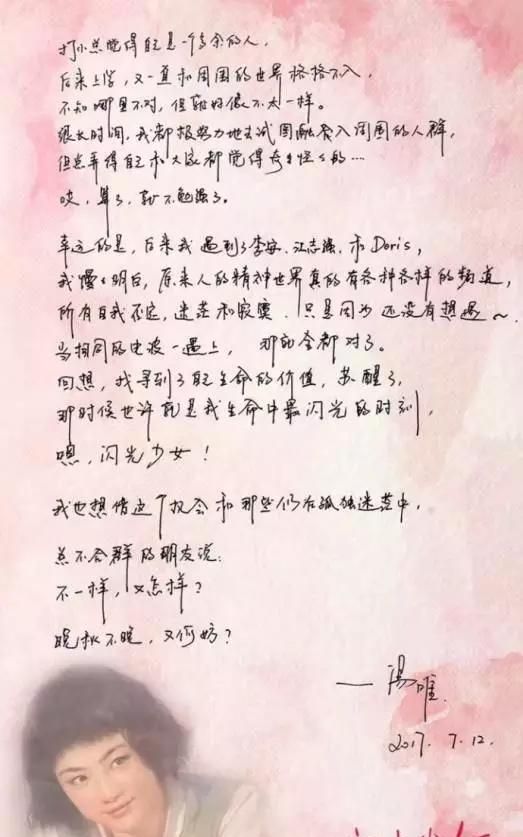 打小总觉得自己是一个多余的人，
后来上学，又一直和周围的世界格格不入，
不知哪里不对，但就好像不太一样。
很长时间，我都极努力地去试图融入周围的人群，
但总弄得自己和大家都觉得奇奇怪怪的…
唉，算了，就不勉强了。
幸运的是，后来我遇到了李安、江志强、和Doris，
我慢慢明白，原来人的精神世界真的有各种各样的频道，
所有自我否定，迷茫和寂寞，只是因为还没有相遇～
当相同的电波一遇上，那就全都对了。
回想，我寻到了自己生命的价值，苏醒了，
那时候也许就是我生命中最闪光的时刻，
嗯，闪光少女！
我也想借这个机会和那些仍在孤独迷茫中，
总不合群的朋友说：
不一样，又怎样？
晚秋不晚，又何妨？
—汤唯
2017.7.12.